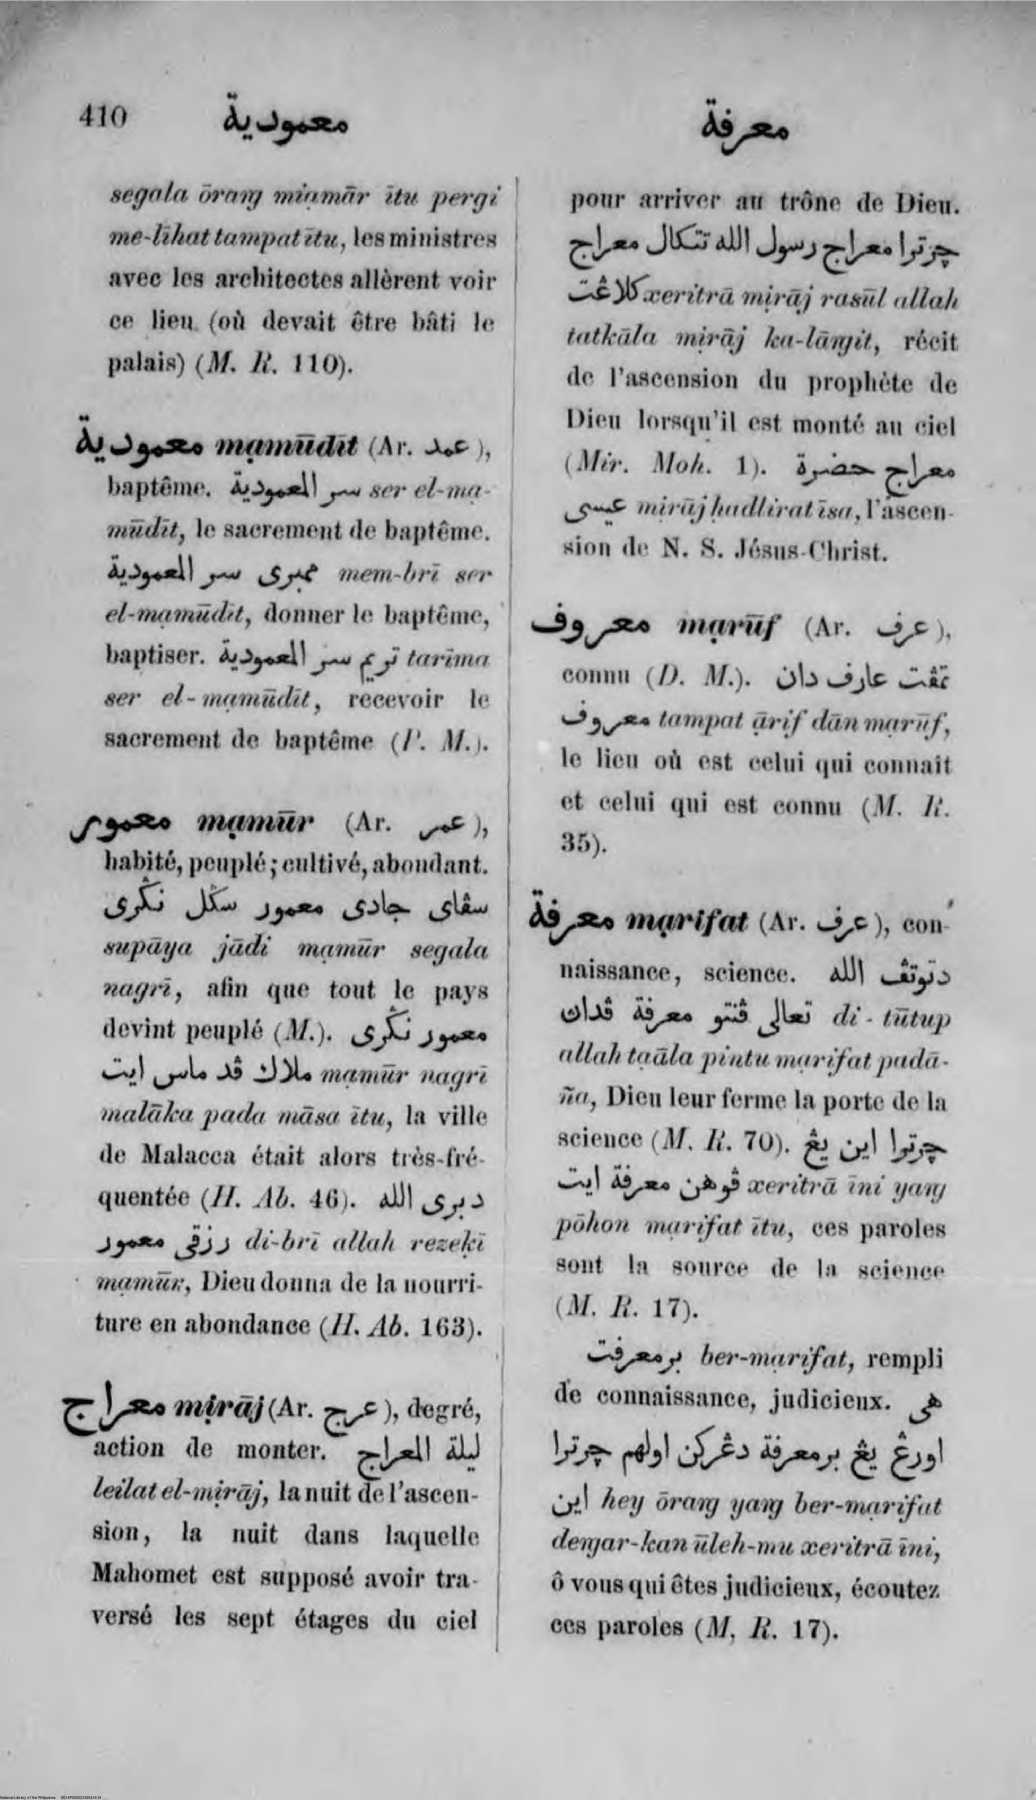 410
معمودية
معرفة
segala ōraŋ mi̤amār ītu pergi
me-līhat tampat ītu, les ministres
avec les architectes allèrent voir
ce lieu (où devait être bâti le
palais) (M. R. 110).
معمودية mạmūdīt (Ar. عمد),
baptême. سر المعمودية ser el-mạ-
mūdīt, le sacrement de baptême.
ممبرى سر المعمودية mem-brī ser
el-mạmūdīt, donner le baptême,
baptiser. تريم سر المعمودية tarīma
ser el-mạmūdīt, recevoir le
sacrement de baptême (P. M.).
معمور mạmūr (Ar. عمر),
habité, peuplé; cultivé, abondant.
سڤاى جادى معمور سݢل نݢرى
supāya jādi mạmūr segala
nagrī, afin que tout le pays
devint peuplé (M.). معمور نݢرى
ملاك ڤد ماس ايت mạmūr nagrī
malāka pada māsa ītu, la ville
de Malacca était alors très-fré-
quentée (H. Ab. 46). دبرى الله
رزقى معمور di-brī allah rezeḳī
mạmūr, Dieu donna de la nourri-
ture en abondance (H. Ab. 163).
معراج mịrāj (Ar. عرج), degré,
action de monter. ليلة المعراج
leilat el-mịrāj, la nuit de l'ascen-
sion, la nuit dans laquelle
Mahomet est supposé avoir tra-
versé les sept étages du ciel
pour arriver au trône de Dieu.
چرترا معراج رسول الله تتكال معراج
كلاڠت xeritrā mịrāj rasūl allah
tatkāla mịrāj ka-lāŋit, récit
de l'ascension du prophète de
Dieu lorsqu'il est monté au ciel
(Mir. Moh. 1). معراج حضرة
عيسى mịrāj ḥadlirat īsa, l'ascen-
sion de N. S. Jésus-Christ.
معروف mạrūf (Ar. عرف),
connu (D. M.). تمڤت عارف دان
معروف tampat ārif dān mạrūf,
le lieu où est celui qui connait
et celui qui est connu (M. R.
35).
معرفة mạrifat (Ar. عرف), con-
naissance, science. دتوتڤ الله
تعالى ڤنتو معرفة ڤدان di-tūtup
allah tạāla pintu mạrifat padā-
ña, Dieu leur ferme la porte de la
science (M. R. 70). چرترا اين يڠ
ڤوهن معرفة ايت xeritrā īni yaŋ
pōhon mạrifat ītu, ces paroles
sont la source de la science
(M. R. 17).
برمعرفت ber-mạrifat, rempli
de connaissance, judicieux. هى
اورڠ يڠ برمعرفة دڠركن اولهم چرترا
اين hey ōraŋ yaŋ ber-mạrifat
deŋar-kan ūleh-mu xeritrā īni,
ô vous qui êtes judicieux, écoutez
ces paroles (M. R. 17).